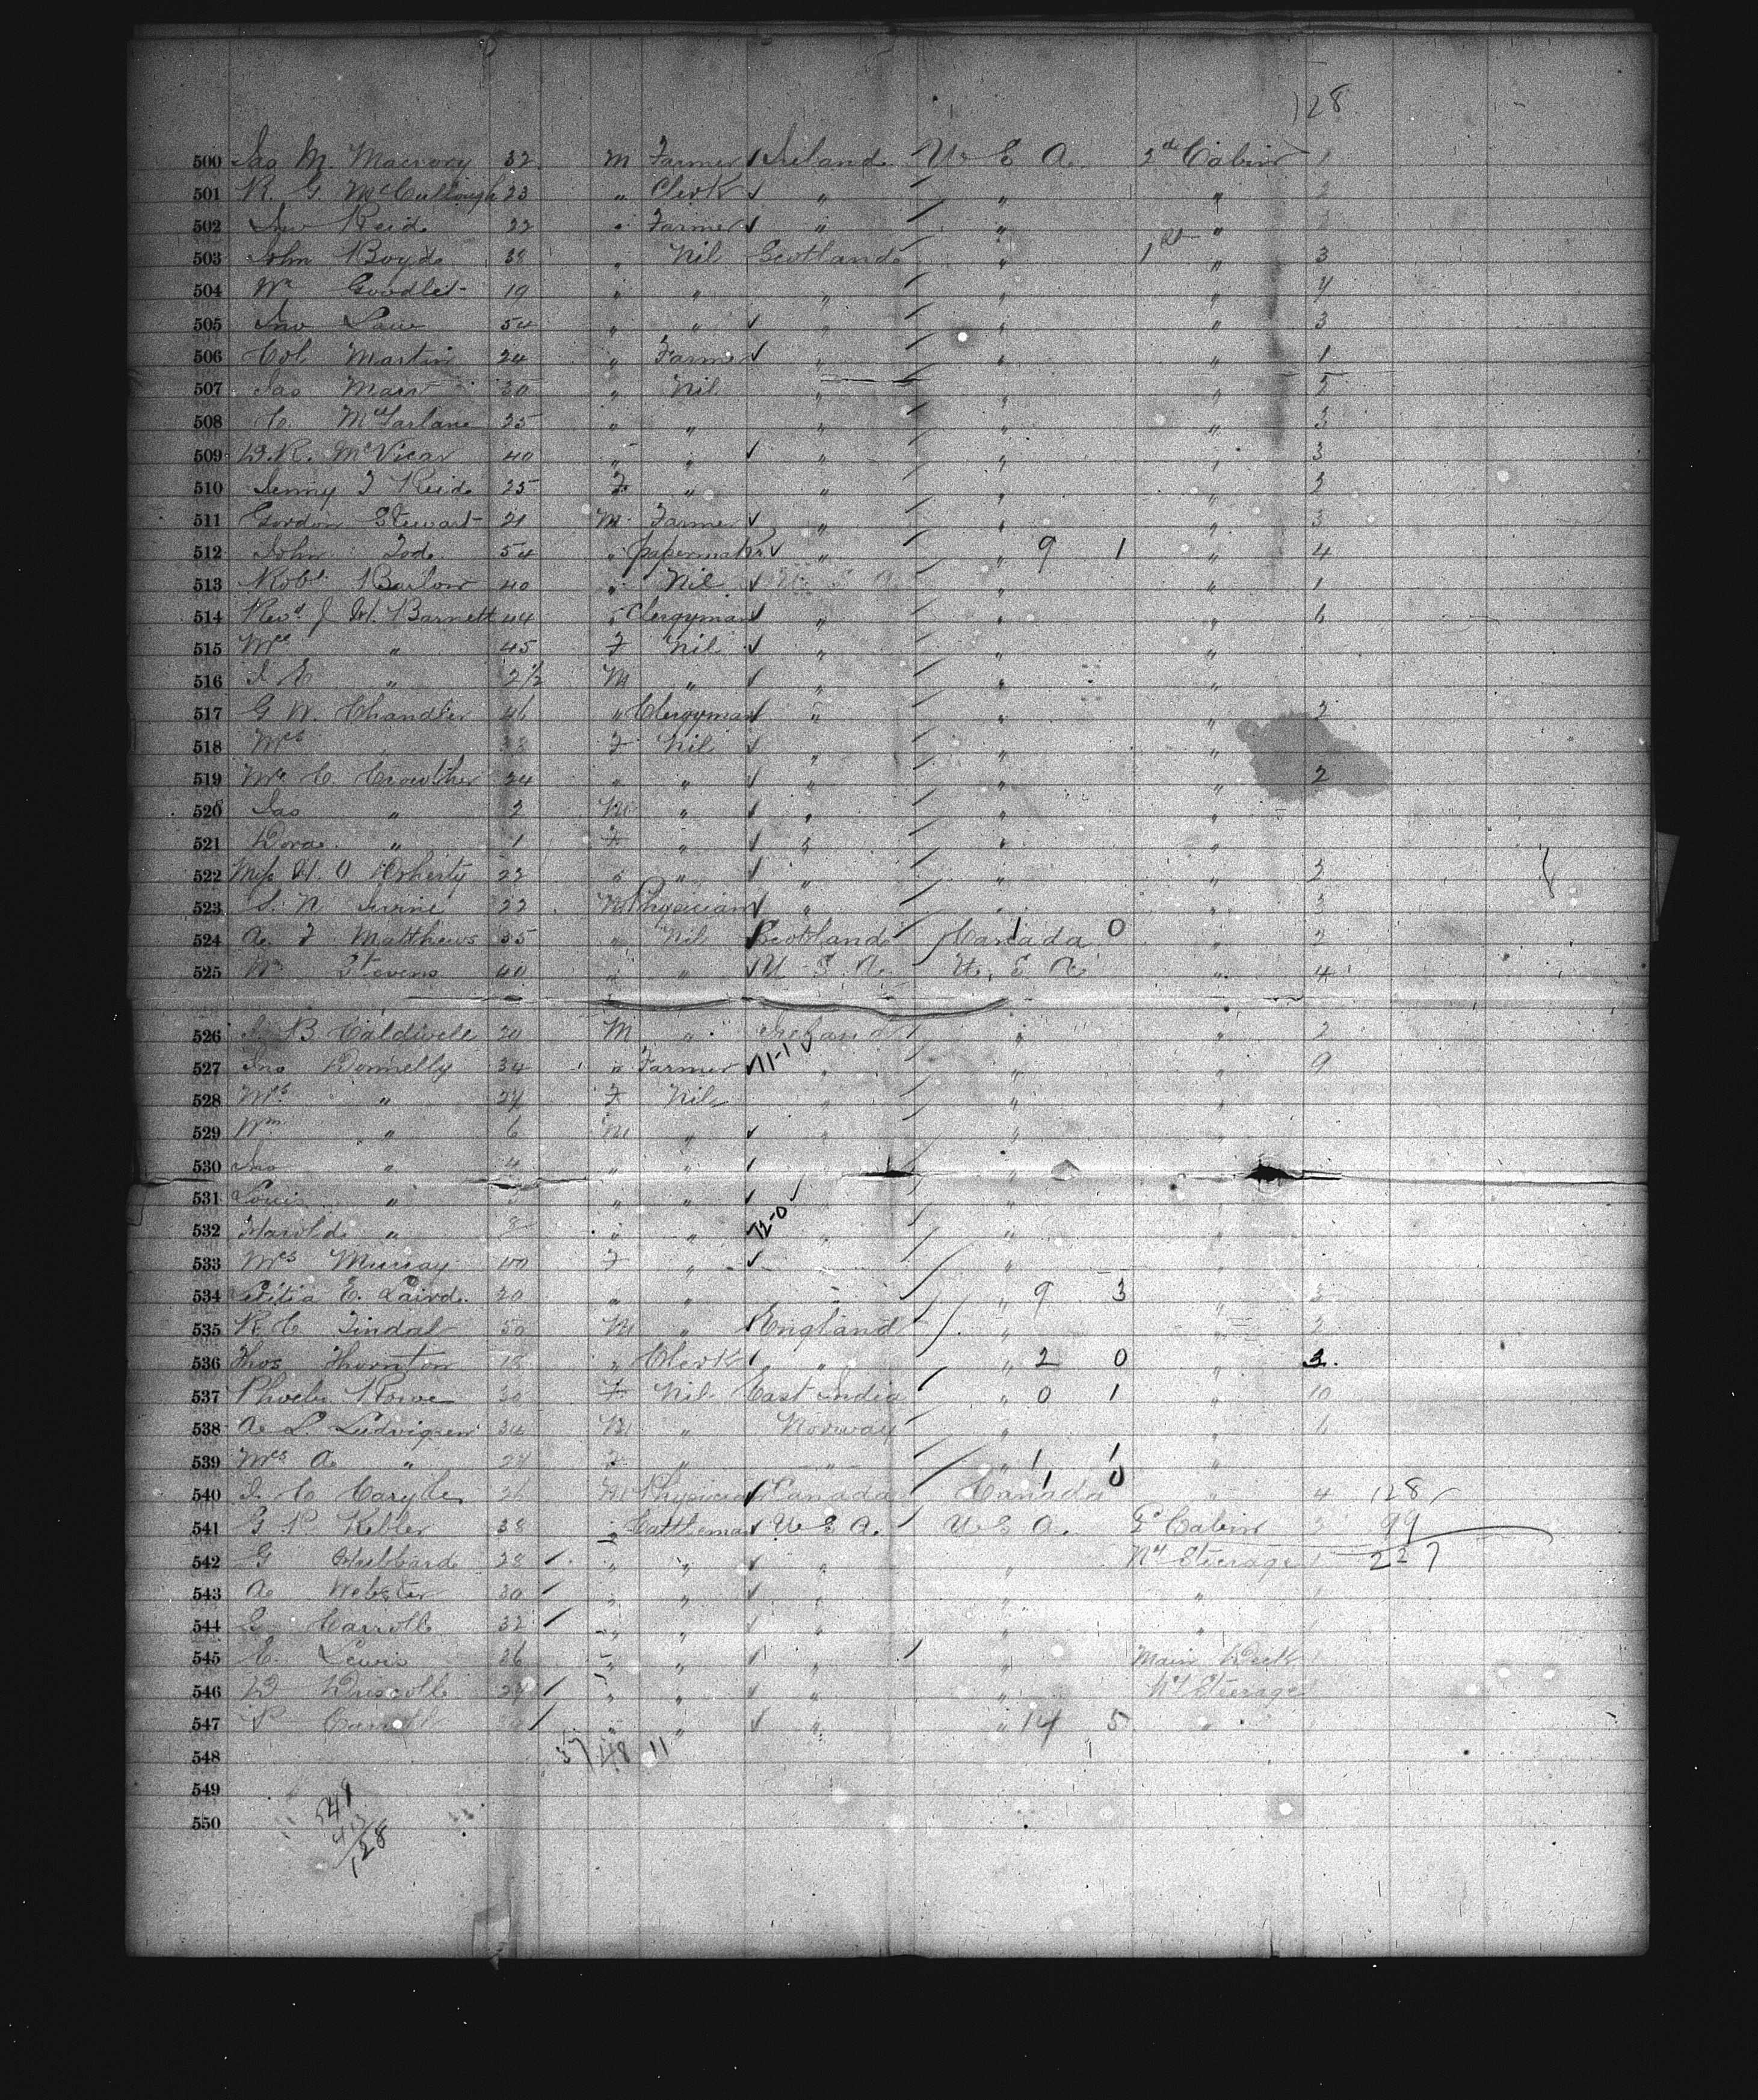 128
500 Jas M. Macrory 32 M Farmer Ireland U S A 2d Cabin 1
501 R. G. McCullough 23 " Clerk " " " 2
502 Jno Reid 22 " Farmer " " "
503 John Boyd 38 " Nil Scotland " 1st " 3
504 Wm Goodlet 19 " " " " " 4
505 Jno 54 " " " " " 3
506 Col Martin 24 " Farmer " " " 1
507 Jas 30 " Nil " " " 2
508 C. McFarlane 25 " " " " " 3
509 D. R. McVicar 40 " " " " " 3
510 Jenny J Reid 25 F " " " " 3
511 Gordon Stewart 21 M Farmer " " " 3
512 John Tod 54 " papermaker " " 9 1 " 4
513 Robt Barlow 40 " Nil U S A " " 1
514 Revd J H. Barnett 44 " Clergyman " " " 6
515 Mrs " 45 F Nil " " "
516 " 2½ M " " " "
517 G W. Chandler 46 " Clergyman " " " 2
518 Mrs F Nil " " "
519 Mrs C. Crowther 24 " " " " " 2
520 Jas " 2 M " " " "
521 Dora " 1 F " " " "
522 Miss H. O Doherty 22 " " " " " 3
523 S. N Irvine 22 M Physician " " " 3
524 A. J Matthews 35 " Nil Scotland Canada 1 0 " 2
525 Wm Stevens 40 " " U S A. U. S A " 4
526 B Caldwell 20 M " Ireland " " 2
527 Jno Donnelly 34 " Farmer 11-1 " " " 9
528 Mrs " 27 F Nil " " "
529 Wm " 6 M " " " "
530 Jno " 4 " " " "
531 " " " "
532 Harold " " " 12-0 " " "
533 Mrs Murray 40 F " " " "
534 Letitia E. Laird. 20 " " " " 9 3 "
535 R. C Tindal 50 M " England " " 2
536 Thos Thornton 18 " Clerk " " 2 0 " 3.
537 Phoebe Rowe 30 F Nil East India " 0 1 " 10
538 A. L. Ludvigsen 34 M " Norway " " 6
539 Mrs A " 27 F " " " 1 1 "
540 J. C Caryle 26 M Physician Canada Canada 1 0 " 4 128
541 G P Kebler 38 " Cattleman U S A. U S A. Cabin 3 99
542 G Hubbard 28 " " " " Steerage 1 227
543 A Webster 30 " " " " " 1
544 G Carroll 32 " " " " "
545 E. Lewis 26 " " " " Main Deck 1
546 D Driscoll 27 " " " " Steerage
547 P " " " " 14 5 "
548 37 48 11
549
550
541
413
128